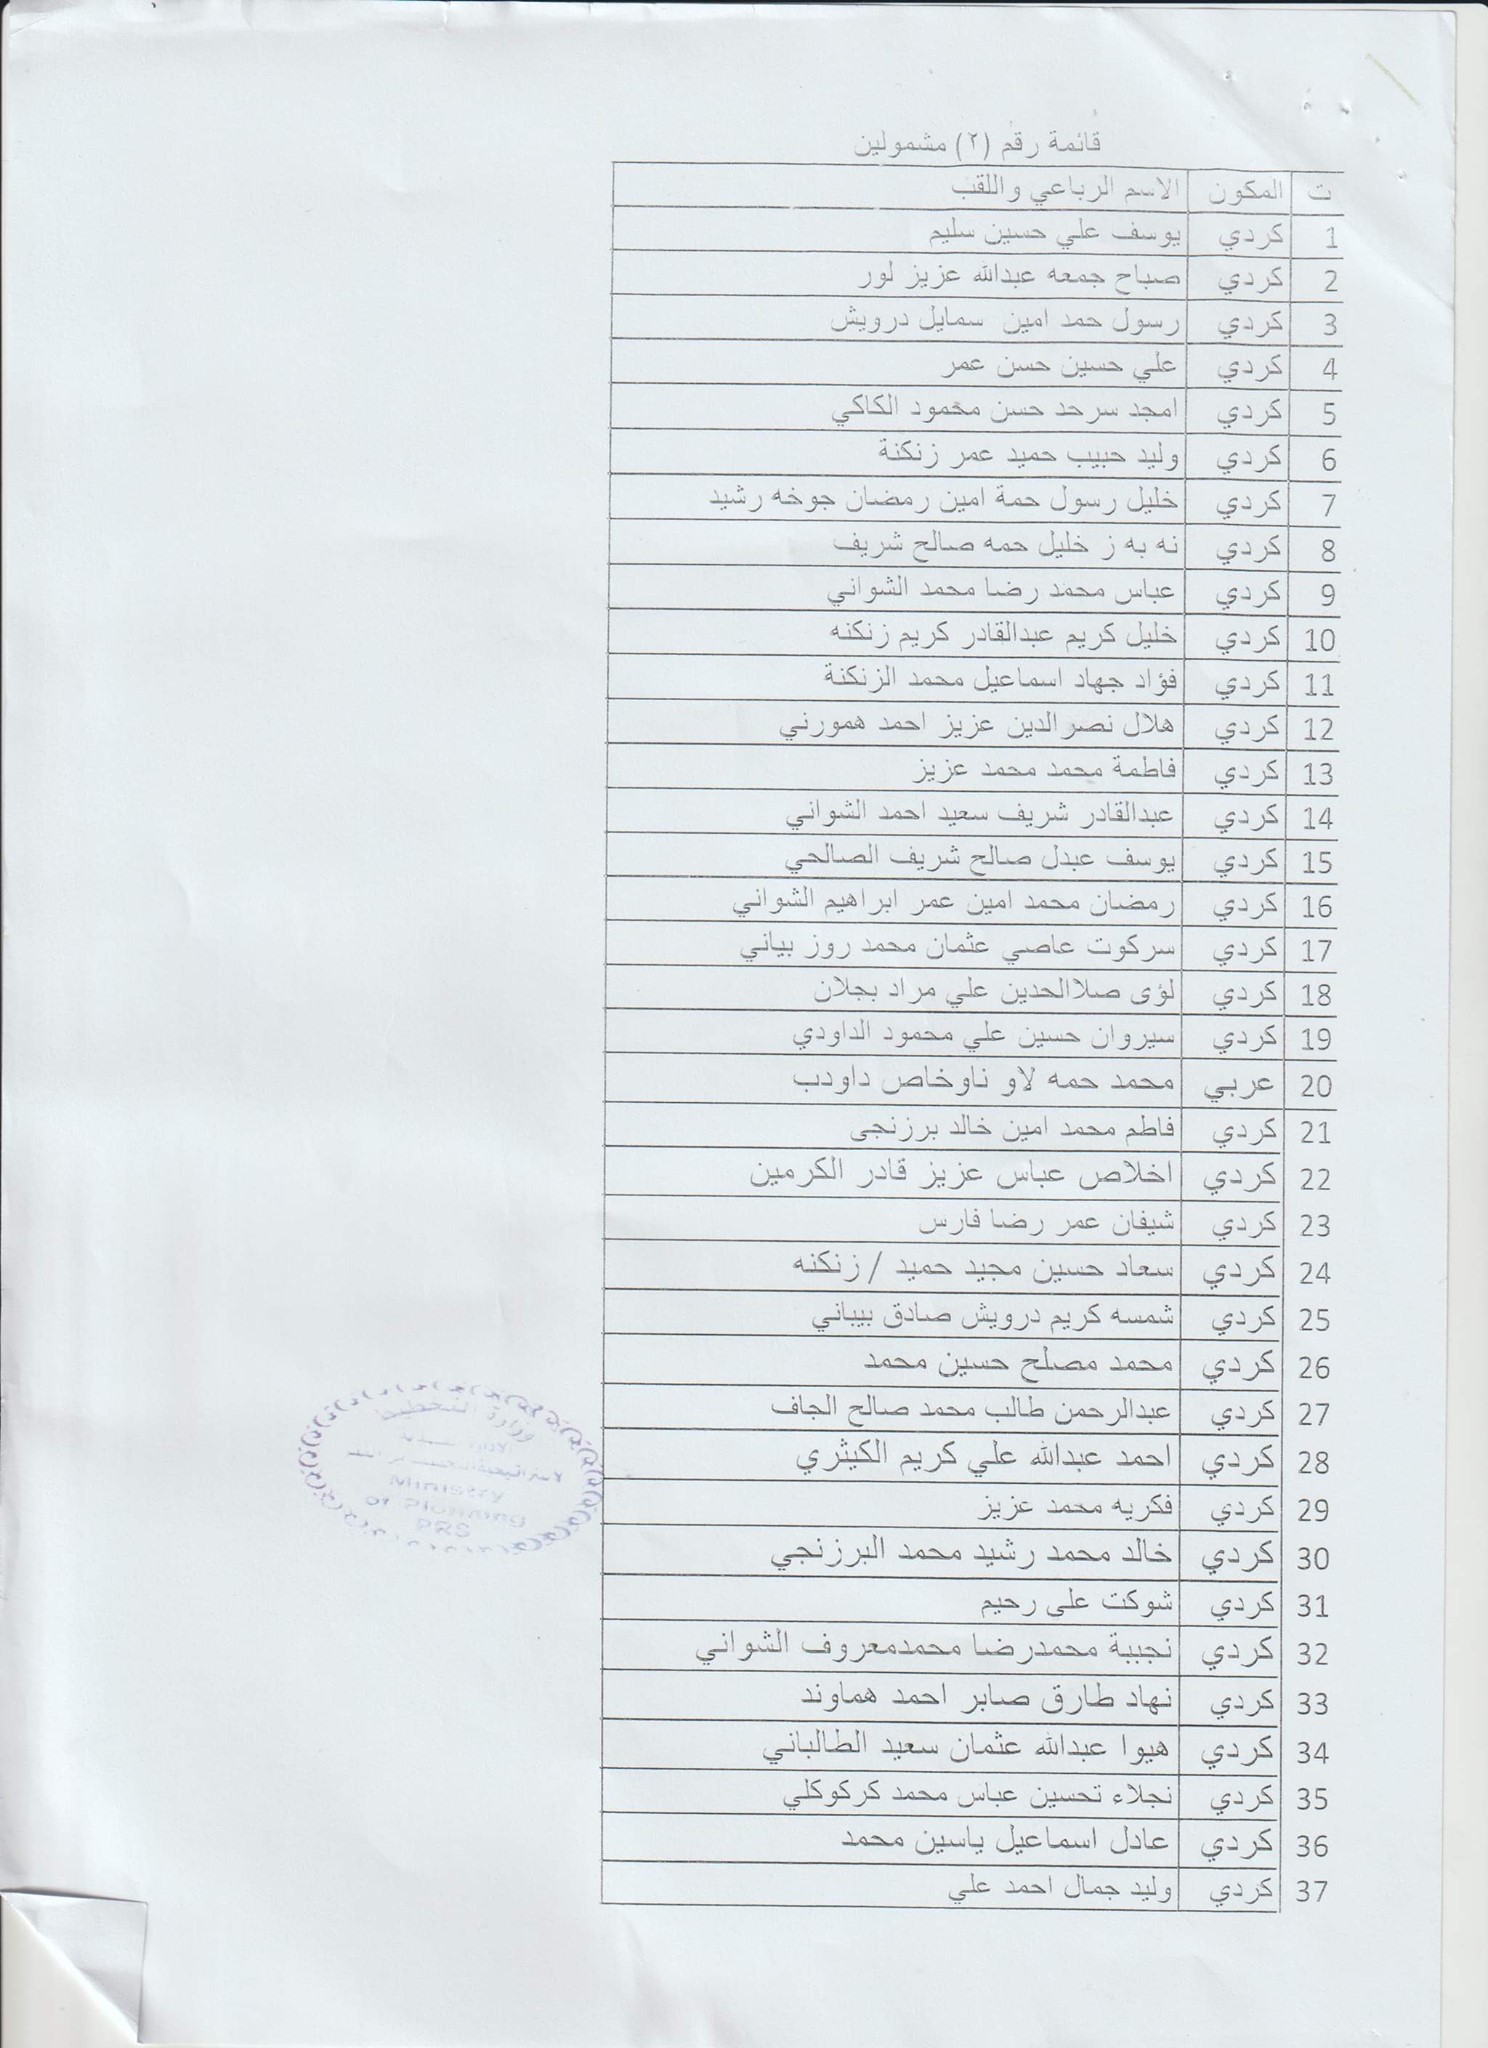 قائمة رقم (٢) مشمولين
ت المكون الاسم الرباعي واللقب
1 كردي يوسف علي حسين سليم
2 كردي صباح جمعه عبدالله عزيز لور
3 كردي رسول حمد امين سمايل درويش
4 كردي علي حسين حسن عمر
5 كردي امجد سرحد حسن محمود الكاكي
6 كردي وليد حبيب حميد عمر زنكنة
7 كردي خليل رسول حمة امين رمضان جوخه رشيد
8 كردي نه به ز خليل حمه صالح شريف
9 كردي عباس محمد رضا محمد الشواني
10 كردي خليل كريم عبدالقادر كريم زنكنه
11 كردي فؤاد جهاد اسماعيل محمد الزنكنة
12 كردي هلال نصرالدين عزيز احمد هموrني
13 كردي فاطمة محمد محمد عزيز
14 كردي عبدالقادر شريف سعيد احمد الشواني
15 كردي يوسف عبدل صالح شريف الصالحي
16 كردي رمضان محمد امين عمر ابراهيم الشواني
17 كردي سركوت عاصي عثمان محمد روز بياني
18 كردي لؤى صلاالحدين علي مراد بجلان
19 كردي سيروان حسين علي محمود الداودي
20 عربي محمد حمه لاو ناوخاص داودب
21 كردي فاطم محمد امين خالد برزنجى
22 كردي اخلاص عباس عزيز قادر الكرمين
23 كردي شيفان عمر رضا فارس
24 كردي سعاد حسين مجيد حميد / زنكنه
25 كردي شمسه كريم درويش صادق بيباني
26 كردي محمد مصلح حسين محمد
27 كردي عبدالرحمن طالب محمد صالح الجاف
28 كردي احمد عبدالله علي كريم الكيثري
29 كردي فكريه محمد عزيز
30 كردي خالد محمد رشيد محمد البرزنجي
31 كردي شوكت على رحيم
32 كردي نجيبة محمدرضا محمدمعروف الشواني
33 كردي نهاد طارق صابر احمد هماوند
34 كردي هيوا عبدالله عثمان سعيد الطالباني
35 كردي نجلاء تحسين عباس محمد كركوكلي
36 كردي عادل اسماعيل ياسين محمد
37 كردي وليد جمال احمد علي
وزارة التخطيط
Ministry
Of Planning
PRS